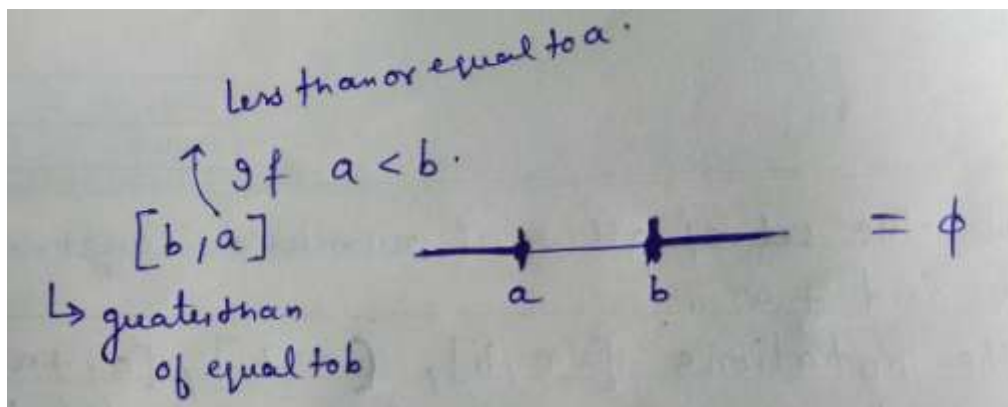 less than or equal to a.
If a < b.
[b, a]
a b
= ϕ
↳ greater than
of equal to b